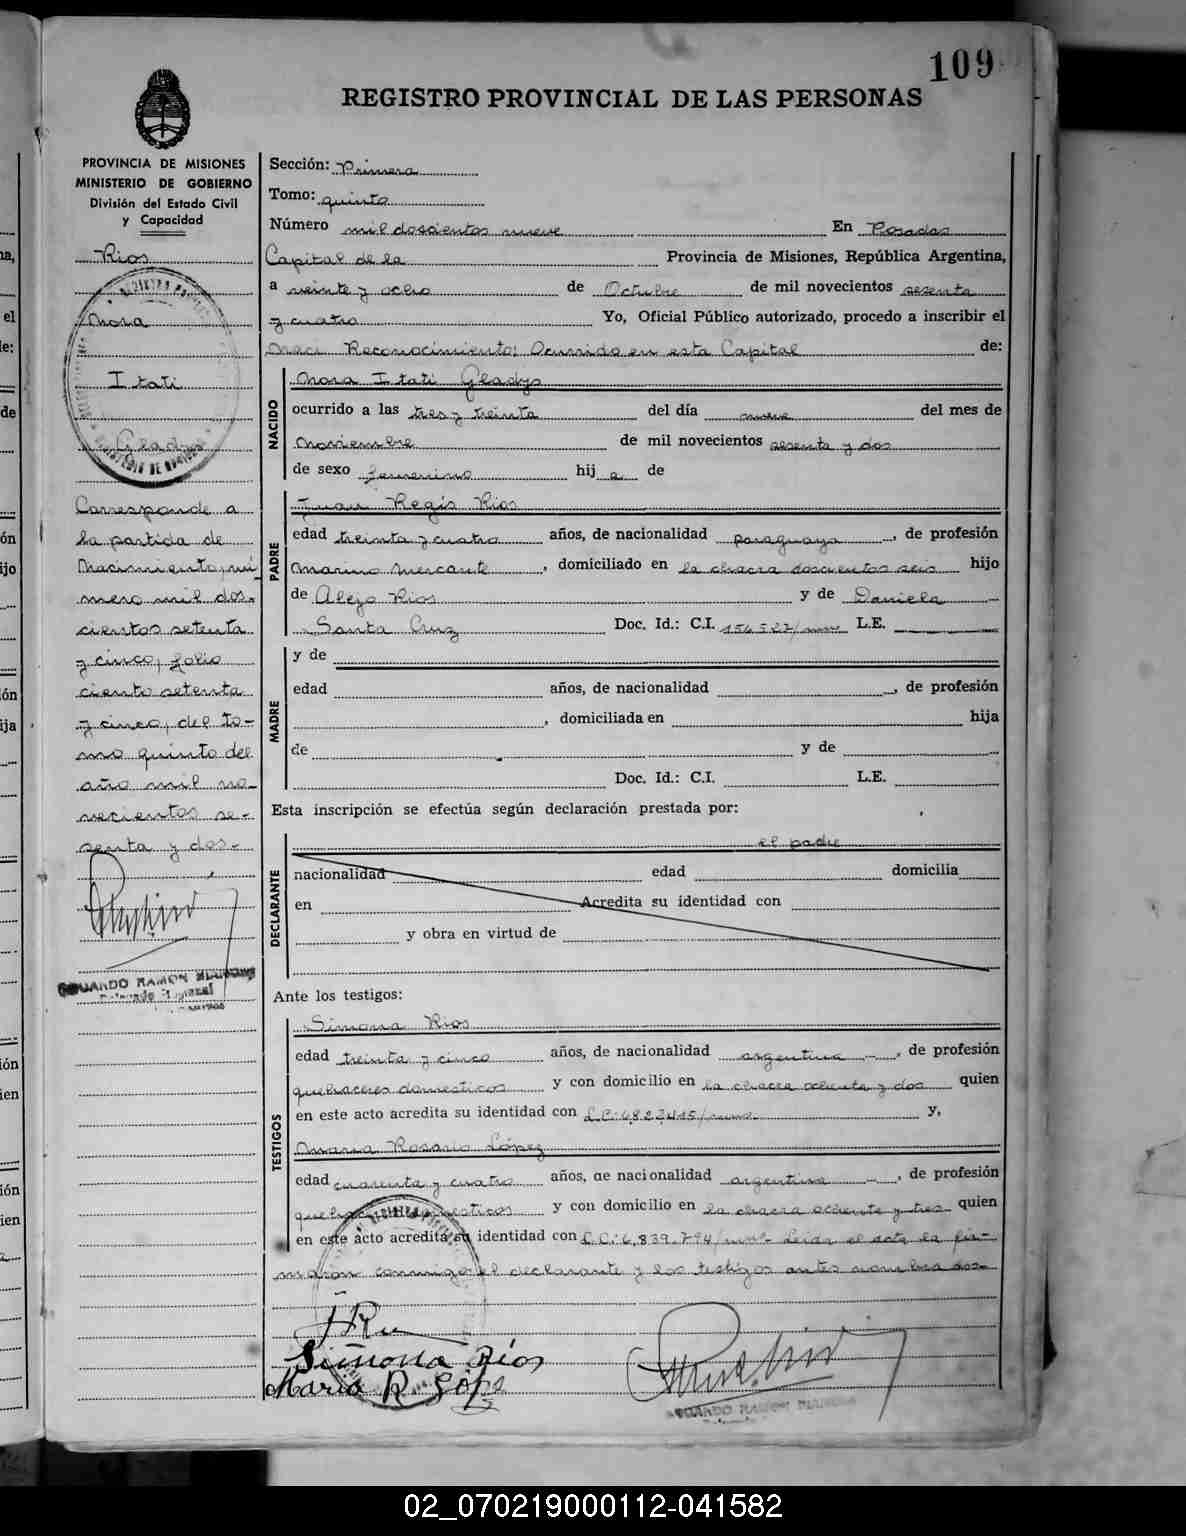 109
REGISTRO PROVINCIAL DE LAS PERSONAS
PROVINCIA DE MISIONES
MINISTERIO DE GOBIERNO
División del Estado Civil
y Capacidad
Rios
Nora
Itati
Gladys
Corresponde a
la partida de
Nacimiento, nú-
mero mil dos-
cientos setenta
y cinco, folio
ciento setenta
y cinco, del to-
mo quinto del
año mil no-
vecientos se-
senta y dos.-
EDUARDO RAMON
Sección: Primera
Tomo: quinto
Número mil doscientos nueve En Posadas
Capital de la Provincia de Misiones, República Argentina,
a veinte y ocho de Octubre de mil novecientos sesenta
y cuatro Yo, Oficial Público autorizado, procedo a inscribir el
Naci Reconocimiento: Ocurrido en esta Capital de:
NACIDO
Nora Itati Gladys
ocurrido a las tres y treinta del día nueve del mes de
Noviembre de mil novecientos sesenta y dos
de sexo femenino hija de
PADRE
Juan Regis Rios
edad treinta y cuatro años, de nacionalidad paraguaya, de profesión
Marino Mercante, domiciliado en la chacra doscientos seis hijo
de Alejo Rios y de Daniela
Santa Cruz Doc. Id.: C.I. 156527/ L.E.
MADRE
y de
edad años, de nacionalidad , de profesión
, domiciliada en hija
de y de
Doc. Id.: C.I. L.E.
Esta inscripción se efectúa según declaración prestada por:
DECLARANTE
el padre
nacionalidad edad domicilia
en Acredita su identidad con
y obra en virtud de
Ante los testigos:
TESTIGOS
Simona Rios
edad treinta y cinco años, de nacionalidad argentina -, de profesión
quehaceres domesticos y con domicilio en la chacra ochenta y dos quien
en este acto acredita su identidad con L.C: y,
Maria Rosario López
edad cuarenta y cuatro años, de nacionalidad argentina -, de profesión
quehaceres domesticos y con domicilio en la chacra ochenta y tres quien
en este acto acredita su identidad con L.C: 6.839.794/ Leida el acta la fir-
maron conmigo el declarante y los testigos antes nombrados-
Simona Ríos
Maria R. López
EDUARDO RAMON
02_070219000112-041582